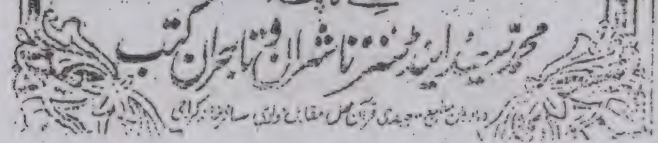 محمد سعید اینڈ سنز ناشران و تاجران کتب
قرآن محل مقابل مولوی مسافر خانہ کراچی